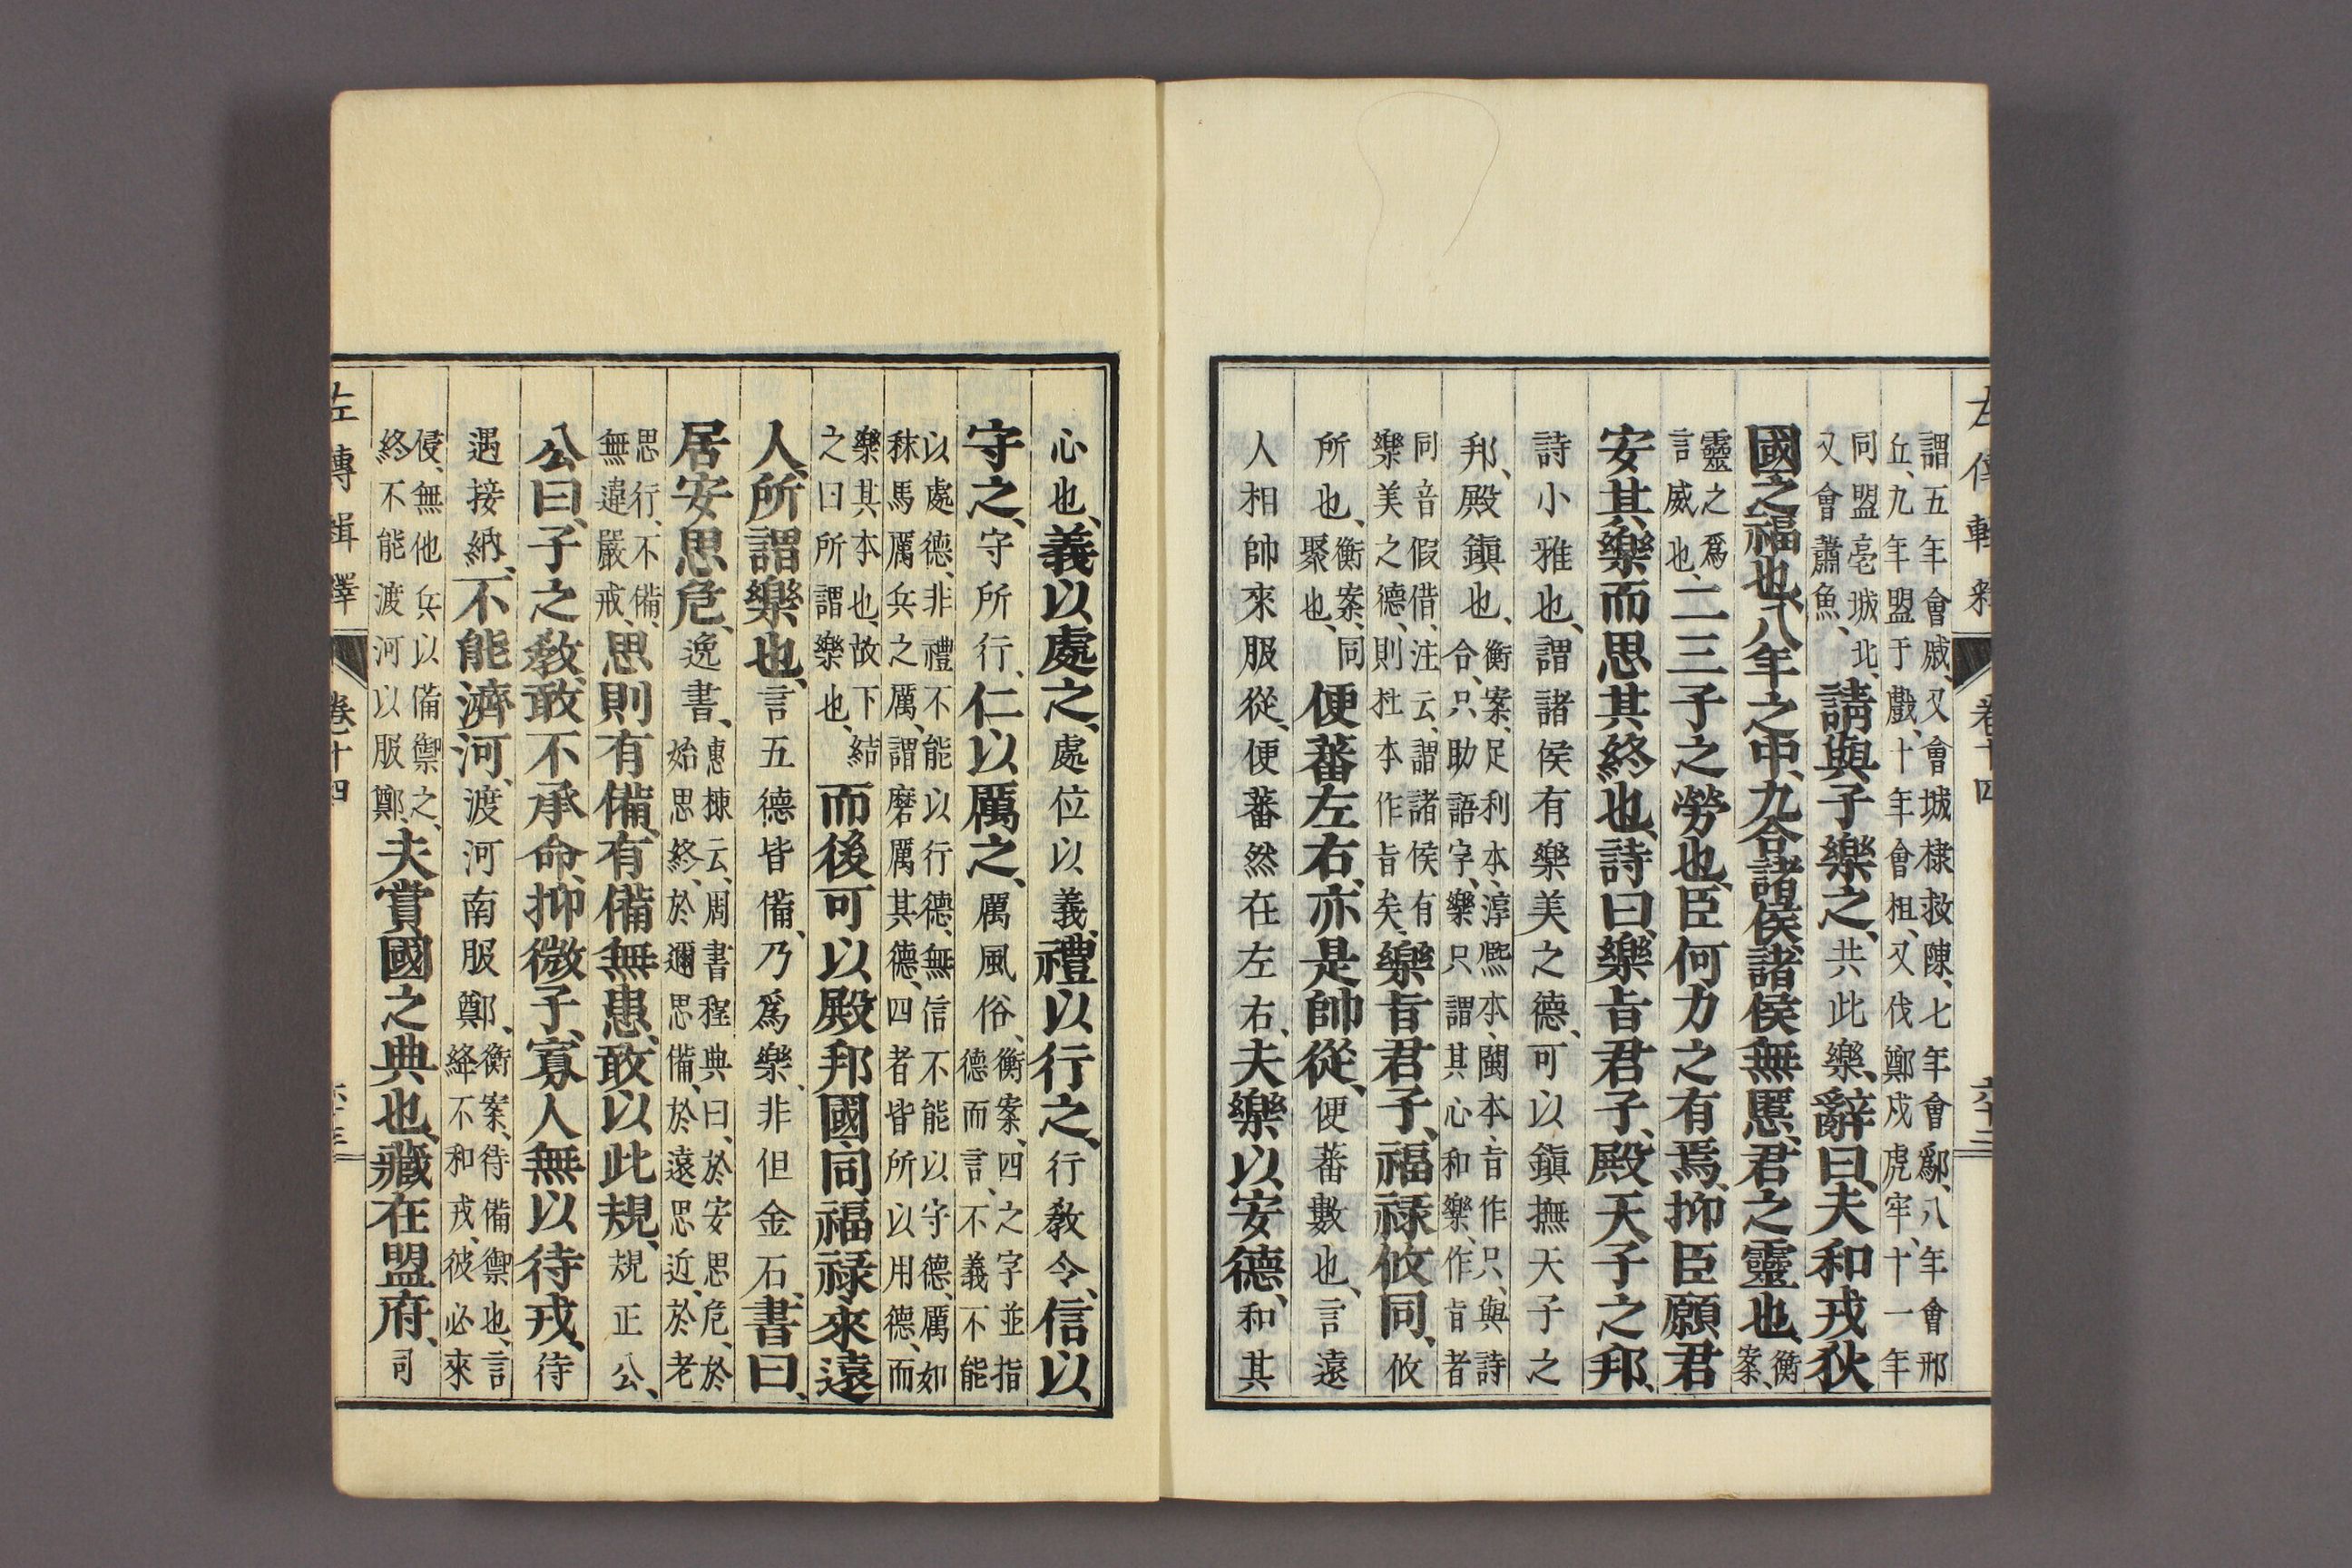 左傳輯釋 卷十四 六十三
謂五年會戚、又會城棣救陳、七年會鄬、八年會邢
丘、九年盟于戲、十年會柤、又伐鄭戍虎牢、十一年
同盟亳城北、
又會蕭魚、
請與子樂之、共此樂、辭曰、夫和戎狄
國之福也、八年之中、九合諸侯、諸侯無慝、君之靈也、衡
案、
靈之爲
言威也、
二三子之勞也、臣何力之有焉、抑臣願君
安其樂而思其終也、詩曰、樂旨君子、殿天子之邦、
詩小雅也、謂諸侯有樂美之德、可以鎭撫天子之
邦、殿鎭也、
衡案、足利本、淳熙本、閩本、旨作只、與詩
合、只助語字、樂只謂其心和樂、作旨者
同音假借、注云、謂諸侯有
樂美之德、則杜本作旨矣、
樂旨君子、福祿攸同、攸
所也、
衡案、同
聚也、
便蕃左右、亦是帥從、便蕃數也、言遠
人相帥來服從、便蕃然在左右、夫樂以安德、和其
心也、義以處之、處位以義、禮以行之、行敎令、信以
守之、守所行、仁以厲之、厲風俗、
衡案、四之字並指
德而言、不義不能
以處德、非禮不能以行德、無信不能以守德、厲如
秣馬厲兵之厲、謂磨厲其德、四者皆所以用德、而
樂其本也、故下結
之曰所謂樂也、
而後可以殿邦國、同福祿、來遠
人、所謂樂也、言五德皆備、乃爲樂、非但金石、書曰、
居安思危、逸書、
惠棟云、周書程典曰、於安思危、於
始思終、於邇思備、於遠思近、於老
思行、不備、
無違嚴戒、
思則有備、有備無患、敢以此規、規正公、
公曰、子之敎、敢不承命、抑微子、寡人無以待戎、待
遇接納、不能濟河、渡河南服鄭、
衡案、待備禦也、言
絳不和戎、彼必來
侵、無他兵以備禦之、
終不能渡河以服鄭、
夫賞國之典也、藏在盟府、司
左傳輯釋 卷十四